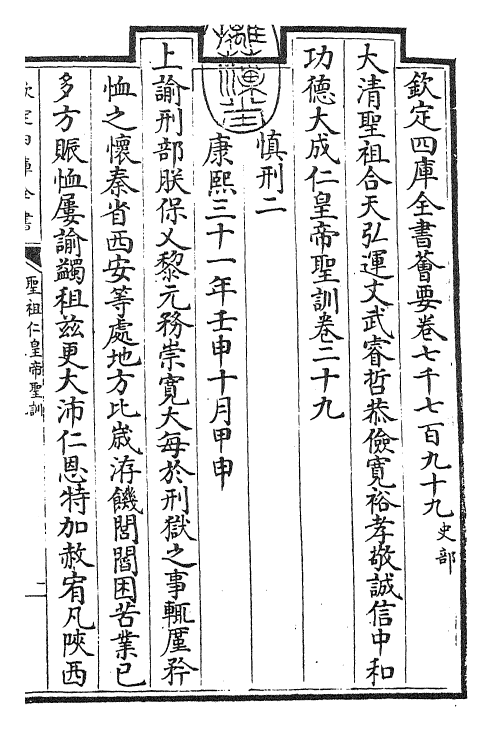 欽定四庫全書薈要卷七千七百九十九史部
大清聖祖合天弘運文武睿哲恭儉寬裕孝敬誠信中和
功德大成仁皇帝聖訓卷二十九
慎刑二
康熙三十一年壬申十月甲申
上諭刑部朕保乂黎元務崇寬大每於刑獄之事輒厪矜
恤之懷秦省西安等處地方比歲洊饑閭閻困苦業已
多方賑恤屢諭蠲租兹更大沛仁恩特加赦宥凡陜西
欽定四庫全書
聖祖仁皇帝聖訓